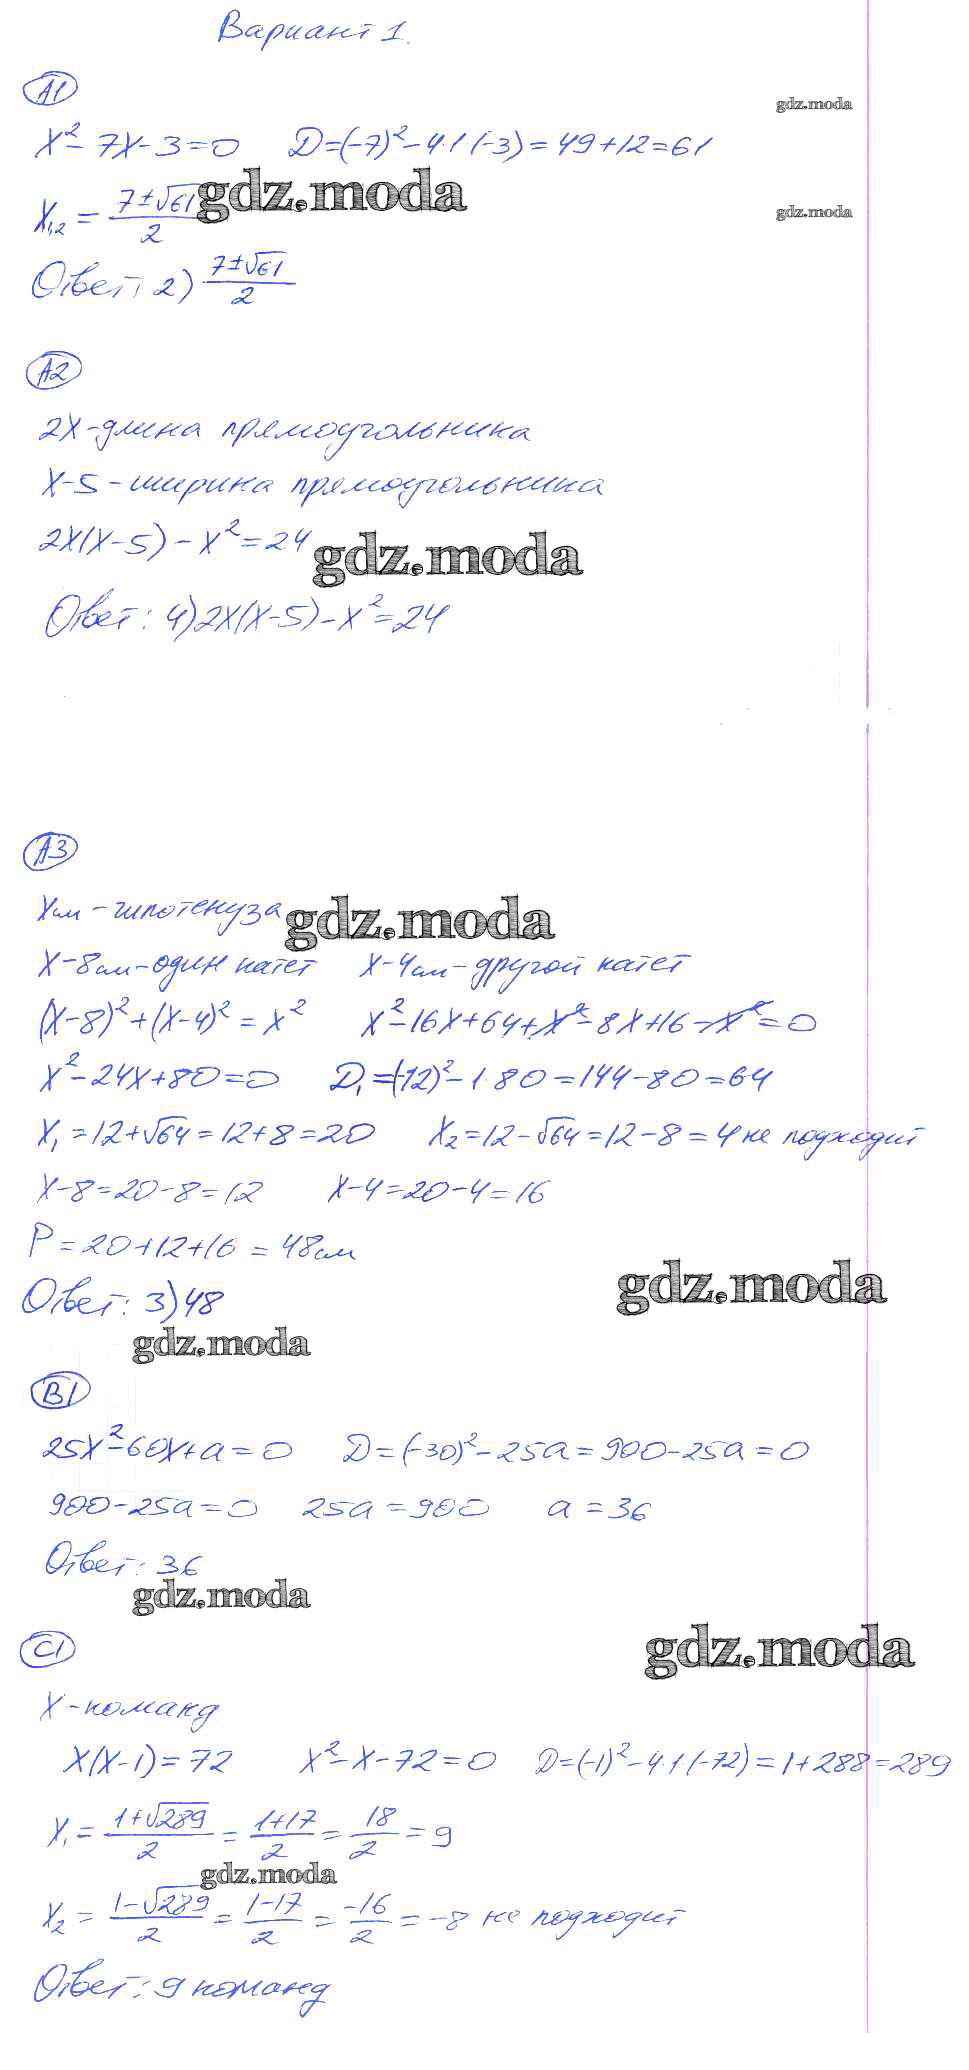 Вариант 1.
А1
gdz.moda
x² - 7x - 3 = 0 D = (-7)² - 4·1·(-3) = 49 + 12 = 61
gdz.moda
x₁,₂ = (7 ± √61)/2
gdz.moda
Ответ: 2) (7 ± √61)/2
А2
2x - длина прямоугольника
x - 5 - ширина прямоугольника
2x(x - 5) - x² = 24
gdz.moda
Ответ: 4) 2x(x - 5) - x² = 24
А3
x см - гипотенуза
gdz.moda
x - 8 см - один катет x - 4 см - другой катет
(x - 8)² + (x - 4)² = x² x² - 16x + 64 + x² - 8x + 16 - x² = 0
x² - 24x + 80 = 0 D₁ = (-12)² - 1·80 = 144 - 80 = 64
x₁ = 12 + √64 = 12 + 8 = 20 x₂ = 12 - √64 = 12 - 8 = 4 не подходит
x - 8 = 20 - 8 = 12 x - 4 = 20 - 4 = 16
P = 20 + 12 + 16 = 48 см
gdz.moda
Ответ: 3) 48
gdz.moda
В1
25x² - 60x + a = 0 D = (-30)² - 25a = 900 - 25a = 0
900 - 25a = 0 25a = 900 a = 36
Ответ: 36
gdz.moda
С1
gdz.moda
x - команд
x(x - 1) = 72 x² - x - 72 = 0 D = (-1)² - 4·1·(-72) = 1 + 288 = 289
x₁ = (1 + √289)/2 = (1 + 17)/2 = 18/2 = 9
gdz.moda
x₂ = (1 - √289)/2 = (1 - 17)/2 = -16/2 = -8 не подходит
Ответ: 9 команд